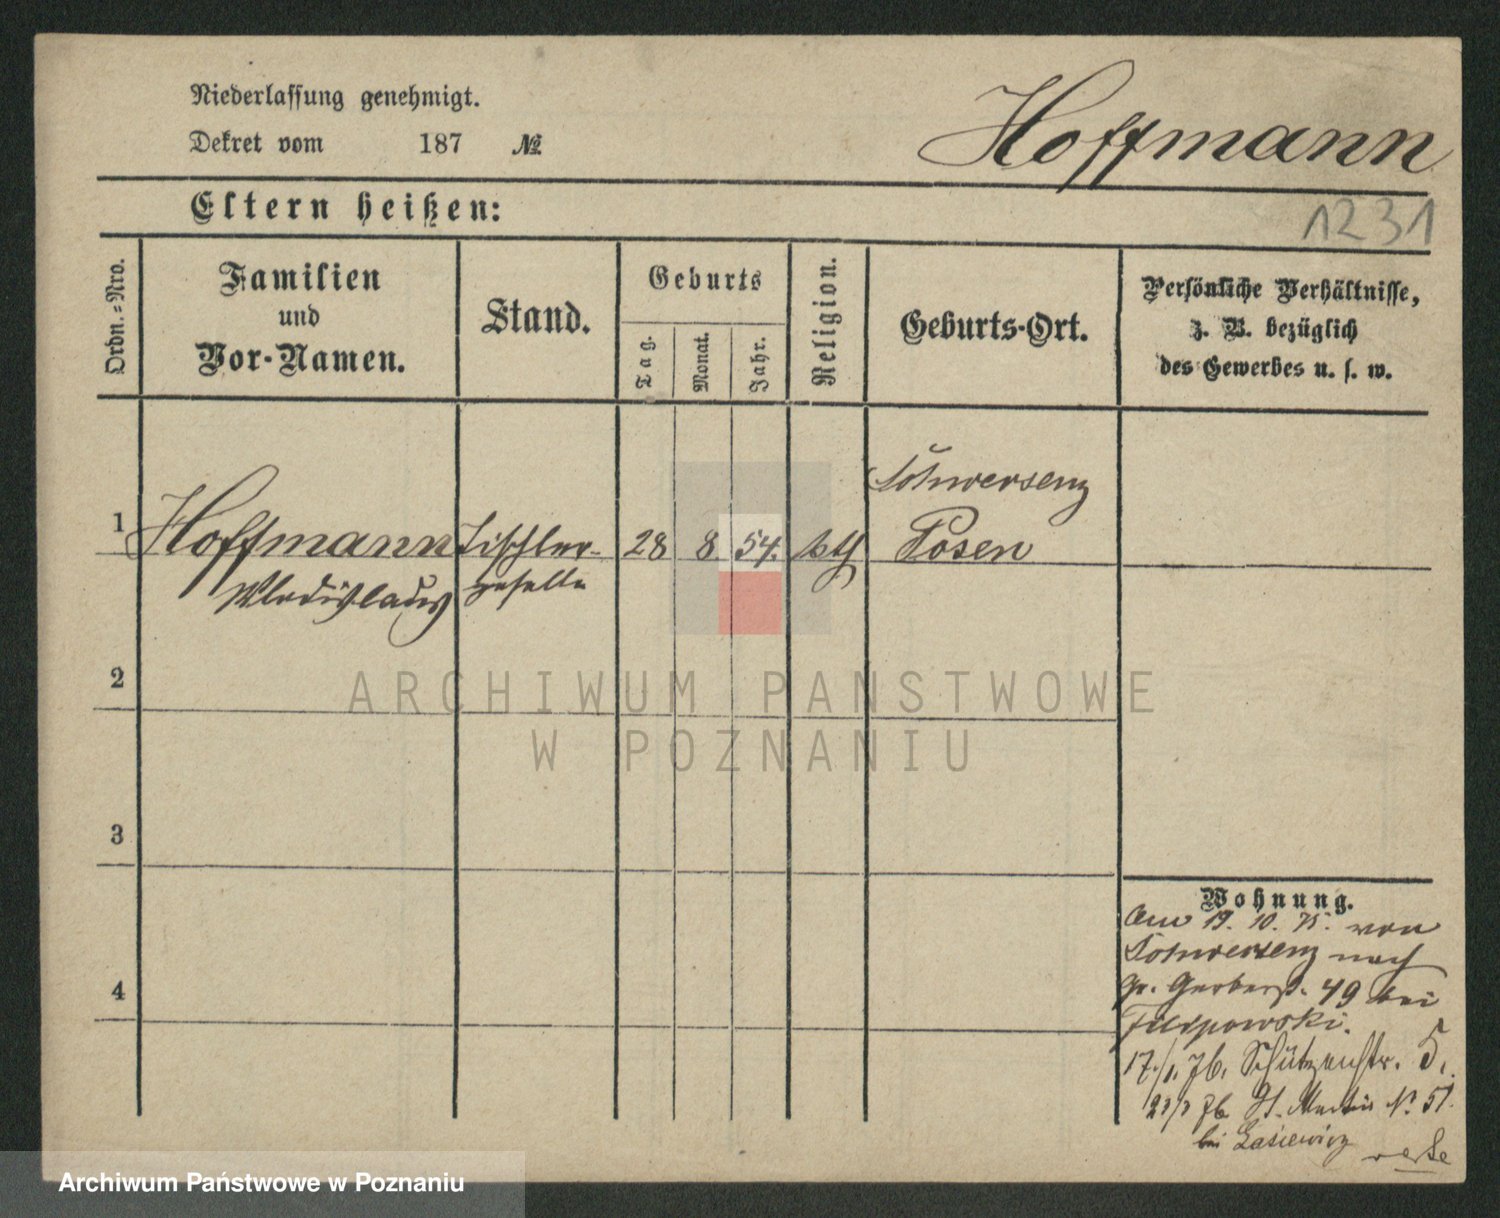 Niederlassung genehmigt.
Dekret vom 187 №
Hoffmann
Eltern heißen:
1231
Ordn.-Nro.
Familien
und
Vor-Namen.
Stand.
Geburts
Tag.
Monat.
Jahr.
Religion.
Geburts-Ort.
Persönliche Verhältnisse,
z. B. bezüglich
des Gewerbes u. s. w.
Schwersenz
1 Hoffmann Tischler- 28 8. 54. kth Posen
Wladislaus geselle
2
3
4
Wohnung.
Am 19. 10. 75. von
Schwersenz nach
gr. Gerberstr. 49 bei
Filipowski.
17./1. 76. Schützenstr. 5.
St. Martin N. 51.
bei Lasiewicz
ARCHIWUM PAŃSTWOWE
W POZNANIU
Archiwum Państwowe w Poznaniu